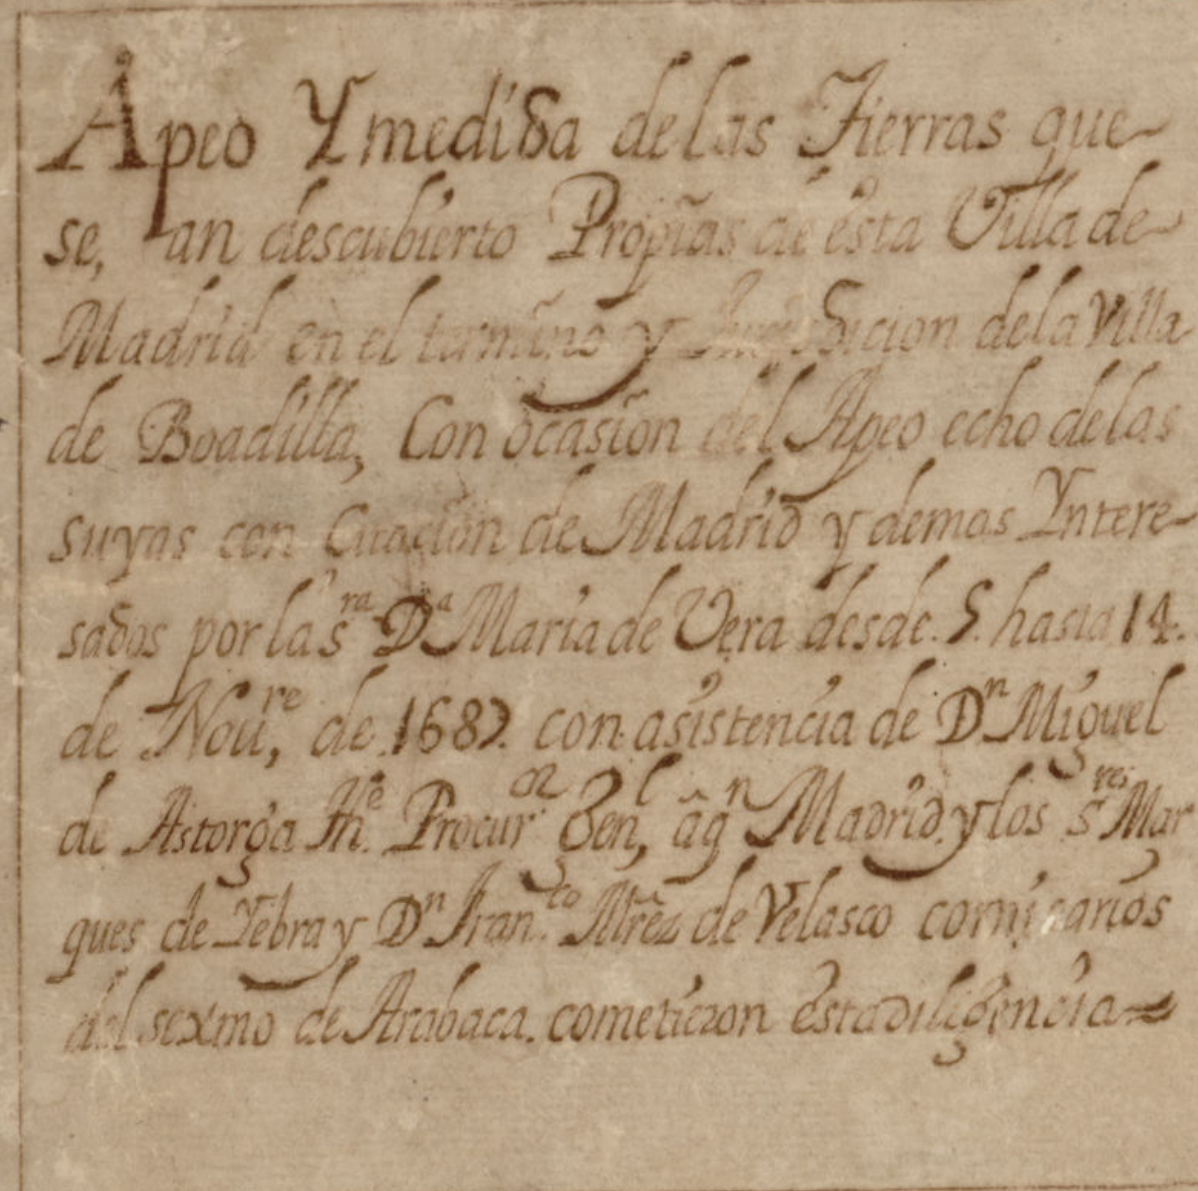 Apeo Y medida de las Tierras que
se, an descubierto Propias de esta Villa de
Madrid en el termino y Jurisdicion de la Villa
de Boadilla, Con ocasion del Apeo echo de las
suyas con Citacion de Madrid y demas Yntere-
sados por la s.ra D.a Maria de Vera desde 5. hasta 14.
de Nou.re, de 1687. con asistencia de D.n Miguel
de Astorga Procur.or Gen.l, Madrid y los s.res Mar
ques de Yebra y D.n Fran.co Mrez de Velasco comisarios
del sexmo de Arabaca. cometieron esta diligencia